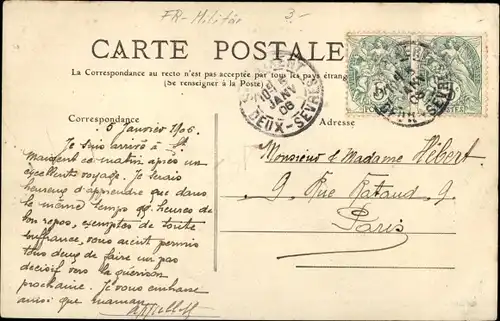 FR-Militär 3.-
CARTE POSTALE
La Correspondance au recto n'est pas acceptée par tous les pays étrang
(Se renseigner à la Poste)
10E
JANV
06
DEUX-SÈVRES
Correspondance
Adresse
5 Janvier 1906.
Je suis arrivé à St.
Maixent ce matin après un
excellent voyage. Je serais
heureux d'apprendre que dans
le même temps qq. heures de
bon repos, exemptes de toute
souffrance, vous aient permis
tous deux de faire un pas
décisif vers la guérison
prochaine. Je vous embrasse
ainsi que maman.
Monsieur & Madame Hébert
9 Rue Rataud 9.
Paris